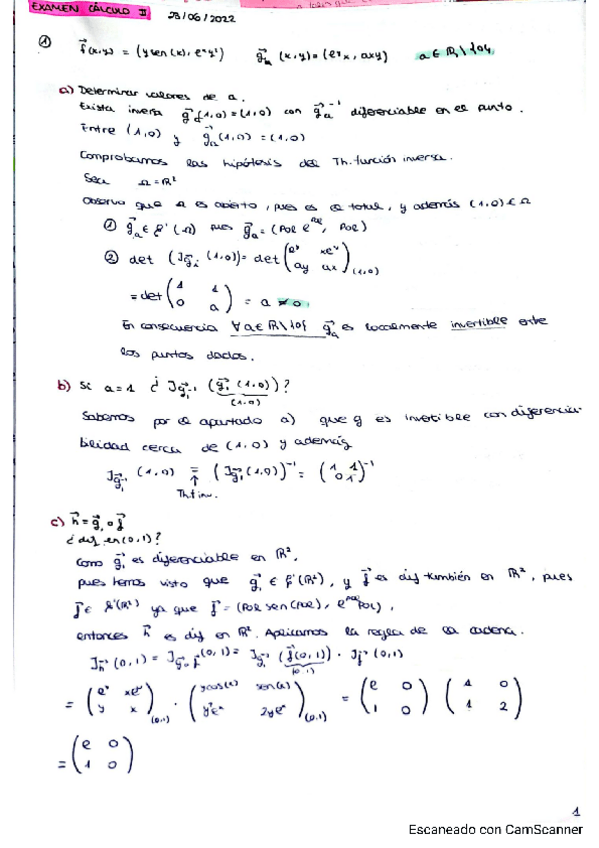 EXAMEN CÁLCULO II 23/06/2022
① f⃗(x,y) = (y sen(x), eˣy²) g⃗ₐ(x,y) = (eʸx, axy) a ∈ ℝ\{0}
a) Determinar valores de a.
Exista inversa g⃗ₐ(1,0) = (1,0) con g⃗ₐ⁻¹ diferenciable en el punto.
Entre (1,0) y g⃗ₐ(1,0) = (1,0)
Comprobamos las hipótesis del Th. función inversa.
Sea Ω = ℝ²
Observo que Ω es abierto, pues es el total, y además (1,0) ∈ Ω
① g⃗ₐ ∈ 𝒞¹(Ω) pues g⃗ₐ = (POL e^POL, POL)
② det (Jg⃗ₐ (1,0)) = det (eʸ xeʸ
ay ax)(1,0)
= det (1 1
0 a) = a ≠ 0
En consecuencia ∀a ∈ ℝ\{0} g⃗ₐ es localmente invertible entre
los puntos dados.
b) Si a = 1 ¿ Jg⃗₁⁻¹ (g⃗₁(1,0))?
(1,0)
Sabemos por el apartado a) que g es invertible con diferencia-
bilidad cerca de (1,0) y además
Jg⃗₁⁻¹ (1,0) = (Jg⃗₁(1,0))⁻¹ = (1 1
0 1)⁻¹
Th.f inv.
c) h⃗ = g⃗₁ ∘ f⃗
¿ dif. en (0,1)?
Como g⃗₁ es diferenciable en ℝ²,
pues hemos visto que g⃗₁ ∈ 𝒞¹(ℝ²), y f⃗ es dif también en ℝ², pues
f⃗ ∈ 𝒞¹(ℝ²) ya que f⃗ = (POL sen(POL), e^POL POL),
entonces h⃗ es dif en ℝ². Aplicamos la regla de la cadena.
Jh⃗ (0,1) = Jg⃗₁∘f⃗ (0,1) = Jg⃗₁ (f⃗(0,1)) · Jf⃗ (0,1)
(0,1)
= (eʸ xeʸ
y x)(0,1) · (y cos(x) sen(x)
y²eˣ 2yeˣ)(0,1) = (e 0
1 0) (1 0
1 2)
= (e 0
1 0)
1
Escaneado con CamScanner